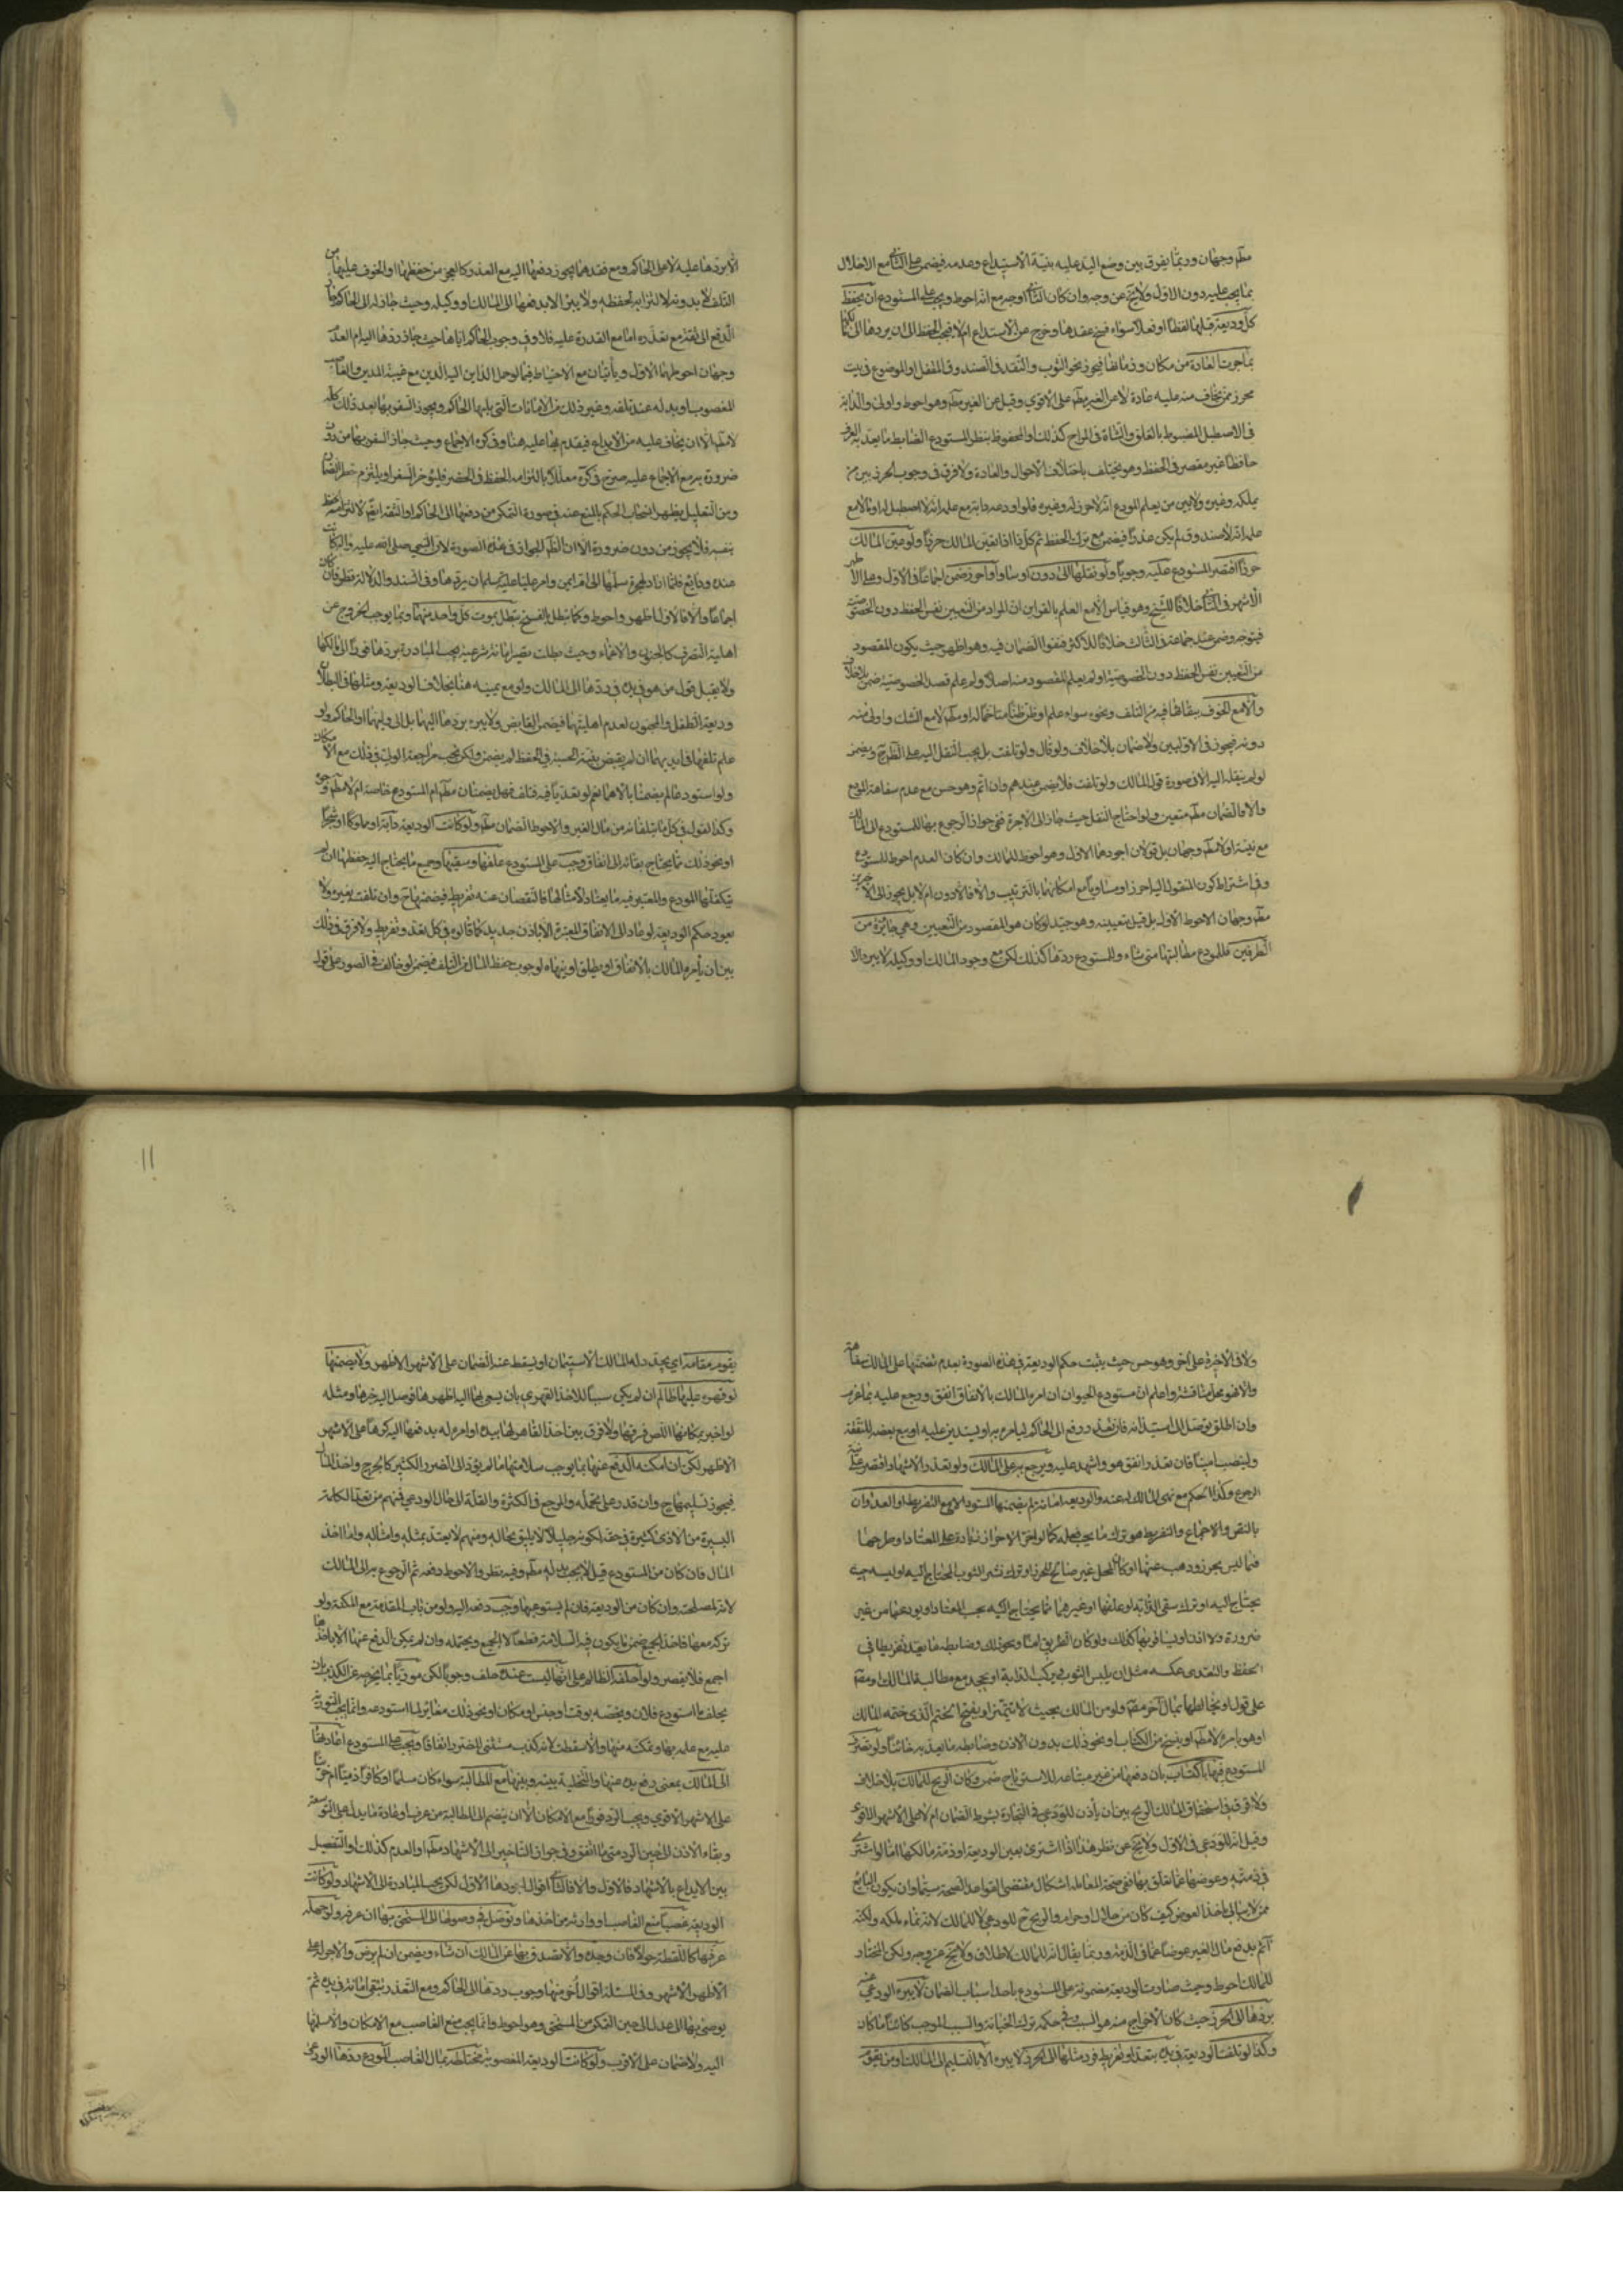 مطم وجهان وربما يفرق بين وضع اليد عليه بنية الاستيداع وعدمه فيضمن على الثاني مع الاخلال
بما يجب عليه دون الاول ولا يخ عن وجه وان كان الثاني اوجه مع انه احوط ويجب على المستودع ان يحفظ
كل وديعة قبلها لفظا او فعلا سواء فسخ عقدها وخرج عن الاستيداع ام لا فيجب الحفظ الى ان يردها الى مالكها
بما جرت العادة من مكان وزمانها فيجوز نحو الثوب والنقد في الصندوق المقفل او الموضوع في بيت
محرز ممن يخاف منه عليه عادة لا عن الغير مطم على الاقوى وقيل عن الغير مطم وهو احوط واولى والدابة
في الاصطبل المضبوط بالغلق والشاة في المراح كذلك او المحفوظ بنظر المستودع الضابط ما يعد به في العرف
حافظا غير مقصر في الحفظ وهو يختلف باختلاف الاحوال والعادة ولا فرق في وجوب الحرز بين من
يملكه وغيره ولا بين من يعلم المودع انه لا حرز له وغيره فلو اودعه دابة مع علمه انه لا اصطبل له او مالا مع
علمه انه لا صندوق له لم يكن عذرا فيضمن مع ترك الحفظ ثم كل ذا اذا لم يعين المالك حرزا ولو عين المالك
حرزا اقتصر المستودع عليه وجوبا ولو نقلها الى دون او مساو او احرز ضمن اجماعا في الاول وعلى الاظهر
الاشهر في الثاني خلافا للشيخ وهو قياس الا مع العلم بالقراين ان المراد من التعيين نفس الحفظ دون الخصوصية
فيتوجه وضمن عند جماعة في الثالث خلافا للاكثر فنفوا الضمان فيه وهو اظهر حيث يكون المقصود
من التعيين نفس الحفظ دون الخصوصية او لم يعلم المقصود منه اصلا ولو علم قصد الخصوصية ضمن بلا خلاف
والا مع الخوف ببقائها فيه من التلف ونحوه سواء علم او ظن ظنا متاخما له او مطم لا مع الشك واولى منه
دونه فيجوز في الاوليين ولا ضمان بلا خلاف ولو قال ولو تلفت بل يجب النقل اليه على الظ وبضمن
لو لم ينقله اليه الا في صورة قول المالك ولو تلفت فلا يضمن عندهم وان اثم وهو حسن مع عدم سفاهة المودع
والا فالضمان مطم متعين ولو احتاج النقل حيث جاز الى الاجرة ففي جواز الرجوع بها للمستودع الى المالك
مع نية او لا مطم وجهان بل قولان اجودهما الاول وهو احوط للمالك وان كان العدم احوط للمستودع
وفي اشتراط كون المنقول اليه احرز او مساويا مع امكانهما بالترتيب والا فالادون ام لا بل يجوز الى الاخيرين
مطم وجهان الاحوط الاول بل قيل بتعيينه وهو جيد لو كان هو المقصود من التعيين وهي جائزة من
الطرفين فللمودع مطالبتها متى شاء وللمستودع ردها كذلك لكن مع وجود المالك او وكيله لا يبرء الا
الا بردها عليه لا على الحاكم ومع فقدهما يجوز دفعها اليه مع العذر كالعجز من حفظها او الخوف عليها من
التلف لا بدونه لالتزامه لحفظه ولا يبرء الا بدفعها الى المالك او وكيله وحيث جاز له الى الحاكم جاز
الدفع الى ثقة مع تعذره اما مع القدرة عليه فلا وفي وجوب الحاكم اياها حيث جاز ردها اليه ام العدم
وجهان احوطهما الاول ويأتيان مع الاحتياط فيما لو حمل المداين اليه الدين مع غيبة المدين والغاصب
المغصوب او بدله عند تلفه وغير ذلك من الامانات التي يليها الحاكم ويجوز السفر بها بعد ذلك كله
لا مطم الا ان يخاف عليه من الايداع فيقدم بها عليه هنا وفي كره الاجماع وحيث جاز السفر بها من دون
ضرورة يرمع الاجماع عليه صرح في كره معللا بالتزامه الحفظ في الحضر فليؤخر السفر او يلتزم خطر الضمان
ومن التعليل يظهر انسحاب الحكم بالمنع عنه في صورة التمكن من دفعها الى الحاكم او الثقة ايضا لالتزامه الحفظ
بنفسه فلا يجوز من دون ضرورة الا ان الظ الجواز في هذه الصورة لان النبي صلى الله عليه واله كانت
عنده ودايع فلما اراد الهجرة سلمها الى ام ايمن وامر عليا عليه السلم ان يردها وفي السند والدلالة نظر فان كان
اجماعا والا فالاول اظهر واحوط وكما تبطل بالفسخ تبطل بموت كل واحد منهما وبما يوجب الخروج عن
اهلية التصرف كالجنون والاغماء وحيث بطلت تصير امانة شرعية يجب المبادرة بردها فورا الى مالكها
ولا يقبل قول من هو في يده في ردها الى المالك ولو مع يمينه هنا بخلاف الوديعة ومثلها في البطلان
وديعة الطفل والمجنون لعدم اهليتهما فيضمن القابض ولا يبرء بردها اليهما بل الى وليهما او الحاكم ولو
علم تلفها في ايديهما ان لم يقبض بنية الحسبة في الحفظ لم يضمن ولكن يجب مراجعة الولي في ذلك مع الامكان
ولو استودعا لم يضمنا بالاهمال نعم لو تعديا فيه فتلف فهل يضمنان مطم ام المستودع خاصة ام لا مطم وجوه
وكذا القول في كل ما يتلفانه من مال الغير والاحوط الضمان مطم ولو كانت الوديعة دابة او مملوكا او شجرا
او نحو ذلك مما يحتاج بقائه الى انفاق وجب على المستودع علفها وسقيها وجميع ما يحتاج اليه حفظها ان لم
يتكفلها المودع والمعتبر فيه ما يعتاد لامثالها فالنقصان عنه تفريط فيضمنها ح وان تلفت بغيره ولا
يعود حكم الوديعة لو عاد الى الانفاق المعتبر الا باذن جديد كما قالوه في كل تعد وتفريط ولا فرق في ذلك
بين ان يأمره المالك بالانفاق او يطلق او ينهاه لوجوب حفظ المال عن التلف فيضمن لو خالف في الصور على قول
ولا في الاخيرة على اخر وهو حسن حيث يثبت حكم الوديعة في هذه الصورة بعدم تضمنها على المالك سفاهة
والا فهو محل مناقشة واعلم ان مستودع الحيوان ان امره المالك بالانفاق انفق ورجع عليه بما غرم
وان اطلق توصل الى استيذانه فان تعذر رفع الى الحاكم ليامره به او يستدين عليه او يبيع بعضه للنفقة
ولينصب امينا فان تعذر انفق هو واشهد عليه ويرجع به على المالك ولو تعذر الاشهاد اقتصر على نية
الرجوع وكذا الحكم مع نهي المالك له عنه والوديعة امانة لم يضمنها المستودع الا مع التفريط او العدوان
بالنص والاجماع والتفريط هو ترك ما يجب فعله كما لو اخر الاحراز زيادة على المعتاد او طرحها
فيما ليس بحرز وذهب عنها او كان المحل غير صالح للحرز او ترك نشر الثوب المحتاج اليه او لبسه حيث
يحتاج اليه او ترك سقي الدابة او علفها او غيرهما مما يحتاج اليه بحسب المعتاد او يودعها من غير
ضرورة ولا اذن او يسافر بها كذلك ولو كان الطريق امنا ونحو ذلك وضابطه ما يعد تفريطا في
الحفظ والتعدي عكسه مثل ان يلبس الثوب او يركب الدابة او يجحد مع مطالبة المالك او مطم
على قول او يخالطها بمال اخر مطم ولو من المالك بحيث لا تتميز او يفتح الختم الذي ختمه المالك
او هو بامره لا مطم او ينسخ من الكتاب او نحو ذلك بدون الاذن وضابطه ما يعد به خائنا ولو تصرف
المستودع فيها باكتساب بان دفعها من غير متاعه للاسترباح ضمن وكان الربح للمالك بلا خلاف
ولا فرق في استحقاق المالك الربح بين ان يأذن للودعي في التجارة بشرط الضمان ام لا على الاشهر الاقوى
وقيل انه للودعي في الاول ولا يخ عن نظر هذا اذا اشترى بعين الوديعة او ذمة مالكها اما لو اشترى
في ذمته وعوضها عما تعلق بها ففي صحة المعاملة اشكال مقتضى القواعد الصحة سيما وان يكون البائع
ممن لا يبالي باخذ العوض كيف كان من حلال او حرام والربح ح للودعي لا للمالك لانه نماء ملكه ولكنه
آثم بدفع مال الغير عوضا عما في الذمة وربما يقال انه للمالك لاطلاق ولا يخ عن وجه ولكن المختار
للمالك احوط وحيث صارت الوديعة مضمونة على المستودع باحد اسباب الضمان لا يبرء الودعي منه
بردها الى الحرز حيث كان الاخراج منه هو السبب وفي حكمه ترك الخيانة والسبب الموجب كائنا ما كان
وكذا لو تلفت الوديعة في يده بتعد او تفريط فرد مثلها الى الحرز لا يبرء الا بالتسليم الى المالك او من يقوم
يقوم مقامه اي يجدد له المالك الاستيمان او يسقط عنه الضمان على الاشهر الاظهر ولا يضمنها
لو قهره عليها ظالم ان لم يكن سببا للاخذ القهري بان يسعى بها اليه اظهرها فوصل اليه خبرها ومثله
لو اخبر بمكانها اللص فسرقها ولا فرق بين اخذ القاهر لها بيده او امره له بدفعها اليه كرها على الاشهر
الاظهر لكن ان امكنه الدفع عنها بما يوجب سلامتها ما لم يؤد الى الضرر الكثير كالجرح واخذ المال
فيجوز تسليمها ح وان قدر على تحمله والمرجع في الكثرة والقلة الى حال الودعي فمنهم من تعد الكلمة
اليسيرة من الاذى كثيرة في حقه لكونه جليلا لا يليق بحاله ومنهم لا يعتد بمثله وامثاله واما اخذ
المال فان كان من المستودع قيل لا يجب بذله له مطم وفيه نظر والاحوط دفعه ثم الرجوع به الى المالك
لانه لمصلحته وان كان من الوديعة فان لم يستوعبها وجب دفعه اليه ولو من باب المقدمة مع المكنة ولو
تركه معها فاخذ الجميع ضمن ما يكون فيه السلامة قطعا لا الجميع ويحتمله وان لم يمكن الدفع عنها الا باخذها
اجمع فلا يقصر ولو احلفه الظالم على انها ليست عنده حلف وجوبا لكن موريا بما يخرجه عن الكذب بان
يحلف ما استودع فلان ويخصه بوقت او جنس او مكان او نحو ذلك مغايرا لما استودعه وانما يجب التورية
عليه مع علمه بها وتمكنه منها والا سقطت لانه كذب مستثنى للضرر اتفاقا ويجب على المستودع اعادتها
الى المالك بمعنى رفع يده عنها والتخلية بينه وبينها مع المطالبة سواء كان مسلما او كافرا ذميا ام حربيا
على الاشهر الاقوى ويجب الرد فورا مع الامكان الا ان ينضم الى المطالبة من عرف او عادة ما يدل على التوسعة
وبقاء الاذن الى حين الرد متى ما اتفق وفي جواز التاخير الى الاشهاد مطم او العدم كذلك او التفصيل
بين الايداع بالاشهاد فالاول والا فالثاني اقوال اجودها الاول لكن يجب المبادرة الى الاشهاد ولو كانت
الوديعة غصبا منع الغاصب او وارثه من اخذها وتوصل في وصولها الى المستحق بها ان عرفه ولو جهله
عرفها كاللقطة حولا فان وجده والا تصدق بها عن المالك ان شاء ويضمن ان لم يرض والاجر له على
الاظهر الاشهر وفي المسئلة اقوال اخر منها وجوب ردها الى الحاكم ومع التعذر تبقى امانة في يده ثم
يوصى بها الى عدل الى حين التمكن من المستحق وهو احوط وانما يجب منع الغاصب مع الامكان والا سلمها
اليه ولا ضمان على الاقرب ولو كانت الوديعة المغصوبة مختلطة بمال الغاصب المودع ردها الودعي